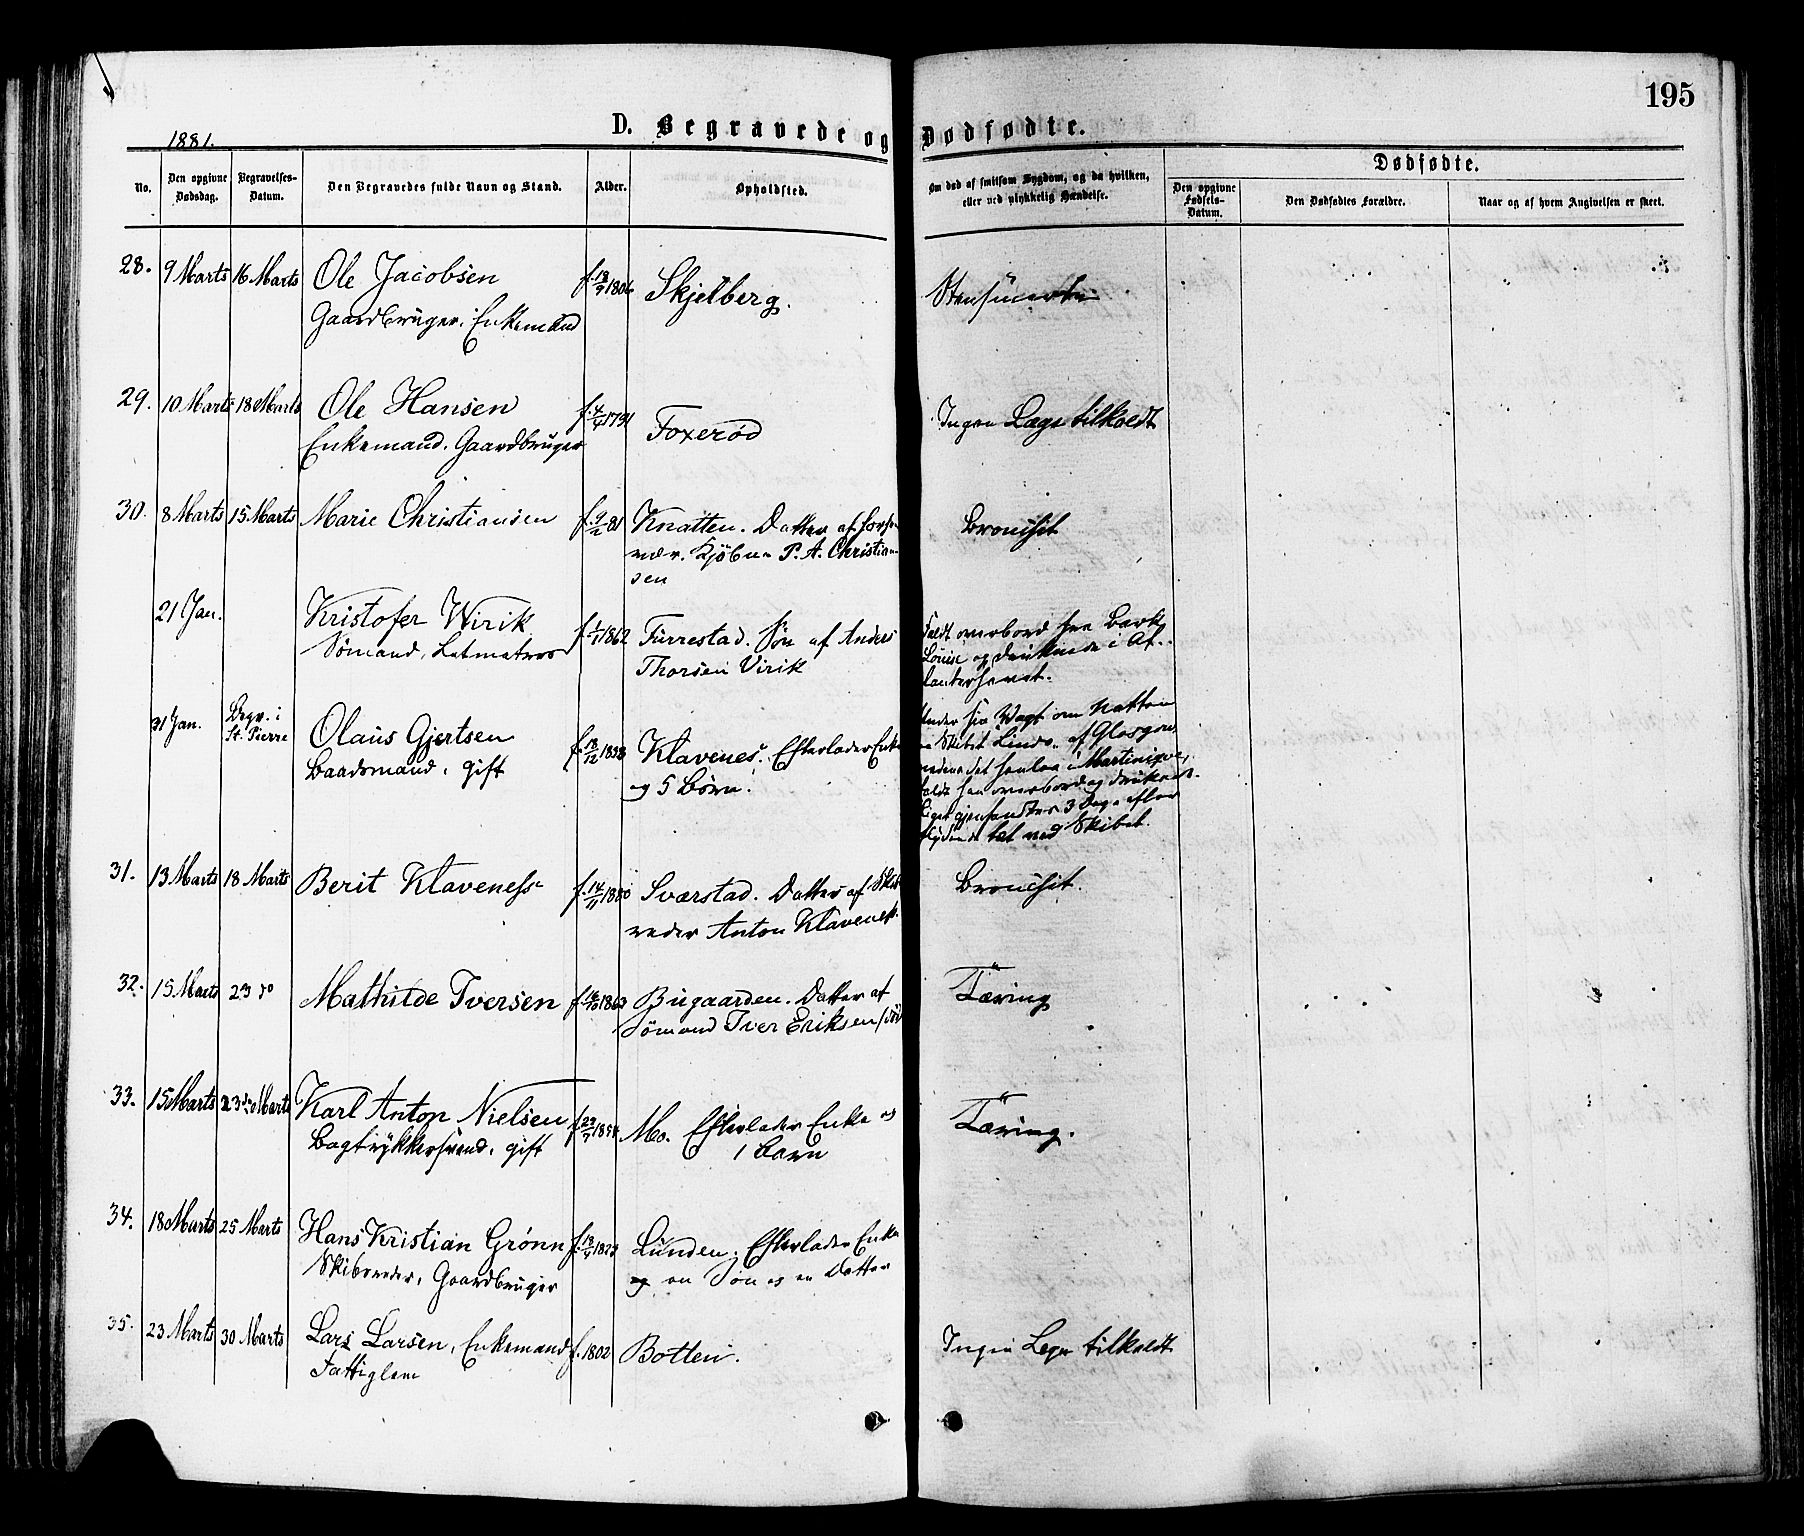 195
D. Begravede og Dødfødte.
1881.
No.
Den opgivne Dødsdag.
Begravelses-Datum.
Den Begravedes fulde Navn og Stand.
Alder.
Opholdsted.
Om død af smitsom Sygdom, og da hvilken, eller ved ulykkelig Hændelse.
Dødfødte.
Den opgivne Fødsels-Datum.
Den Dødfødtes Forældre.
Naar og af hvem Angivelsen er skeet.
28. 9 Marts 16 Marts Ole Jacobsen f. 18/9 1806 Skjelberg.
Gaardbruger. Enkemand
29. 10 Marts 18 Marts Ole Hansen f. 4/4 1791 Foxerød Ingen Læge tilkaldt
Enkemand. Gaardbruger
30. 8 Marts 15 Marts Marie Christiansen f. 9/2 81 Knatten. Datter af forhen- Bronchit
vær. Kjøbm. P. A. Christian-
sen
21 Jan. Kristofer Wirik f. 1/1 1862 Furrestad. Søn af Anders Faldt overbord fra Bark
Sømand, Letmatros Thorsen Virik Louise og druknede i At-
lanterhavet.
31 Jan. Begr. i St. Pierre Olaus Gjertsen f. 18/12 1838 Klavenes. Efterlader Enke Under sin Vagt om Natten
Baadsmand, gift og 5 Børn. Skibet af Glasgow
medens det henlaa i Martinique,
faldt han overbord og druknede.
Liget gjenfandtes 3 Dage efter
flydende tæt ved Skibet.
31. 13 Marts 18 Marts Berit Klaveness f. 14/11 1880 Sværstad. Datter af Skibs- Bronchit.
reder Anton Klaveness.
32. 15 Marts 23 do Mathilde Iversen f. 16/10 1863 Bugaarden. Datter af Tæring
Sømand Iver Eriksen
33. 15 Marts 23de Marts Karl Anton Nielsen Mo. Efterlader Enke og Tæring.
Bogtrykkersvend, gift 1 Barn
34. 18 Marts 25 Marts Hans Kristian Grønn Lunden. Efterlader Enke
Skibsreder, Gaardbruger og en Søn og en Datter
35. 23 Marts 30 Marts Lars Larsen, Enkemand f. 1802 Botten. Ingen Læge tilkaldt
Fattiglem